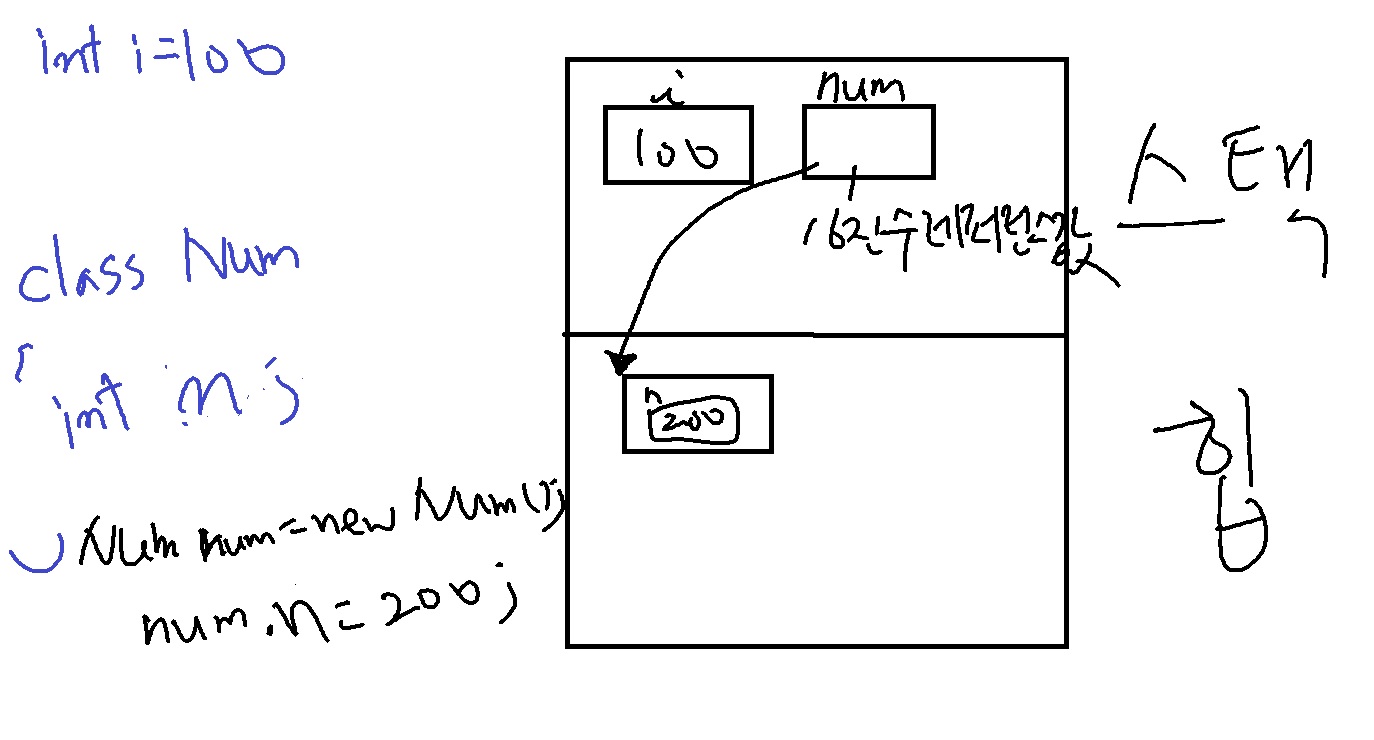 int i=100
class Num
{
int n;
}
Num num=new Num();
num.n=200;
i
100
num
16진수 레퍼런스값
스택
n
200
힙